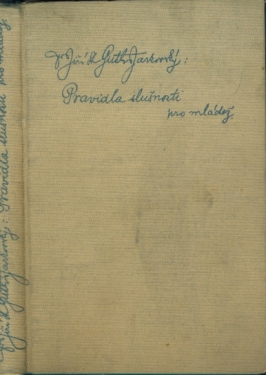 Dr Jiří St. Guth-Jarkovský:
Pravidla slušnosti
pro mládež.
Dr Jiří St. Guth-Jarkovský: Pravidla slušnosti pro mládež.